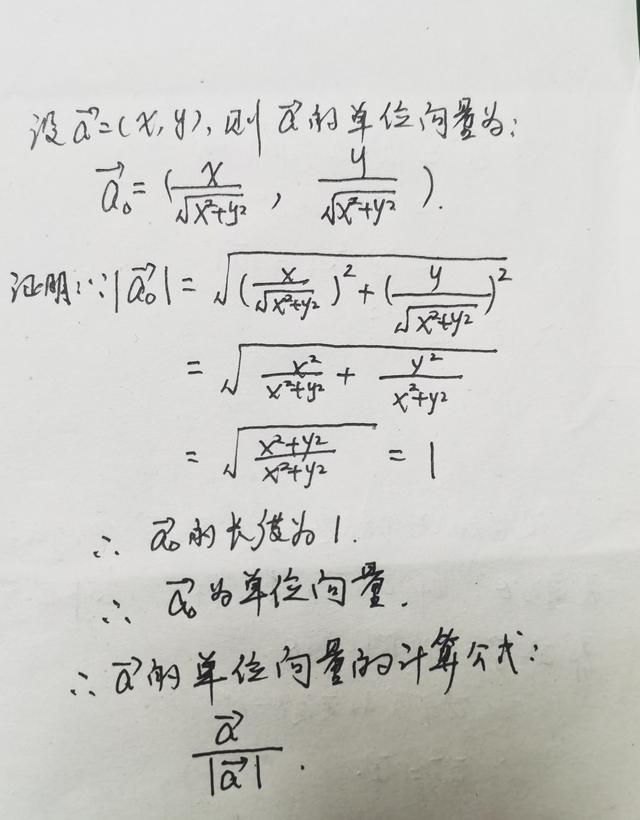 设 a⃗=(x,y),则 a⃗ 的单位向量为:
a⃗₀=(x/√(x²+y²) , y/√(x²+y²) ).
证明:∵|a⃗₀| = √((x/√(x²+y²))²+(y/√(x²+y²))²)
= √(x²/(x²+y²) + y²/(x²+y²))
= √((x²+y²)/(x²+y²)) = 1
∴ a⃗₀的长度为1.
∴ a⃗₀为单位向量.
∴ a⃗的单位向量的计算公式:
a⃗/|a⃗| .